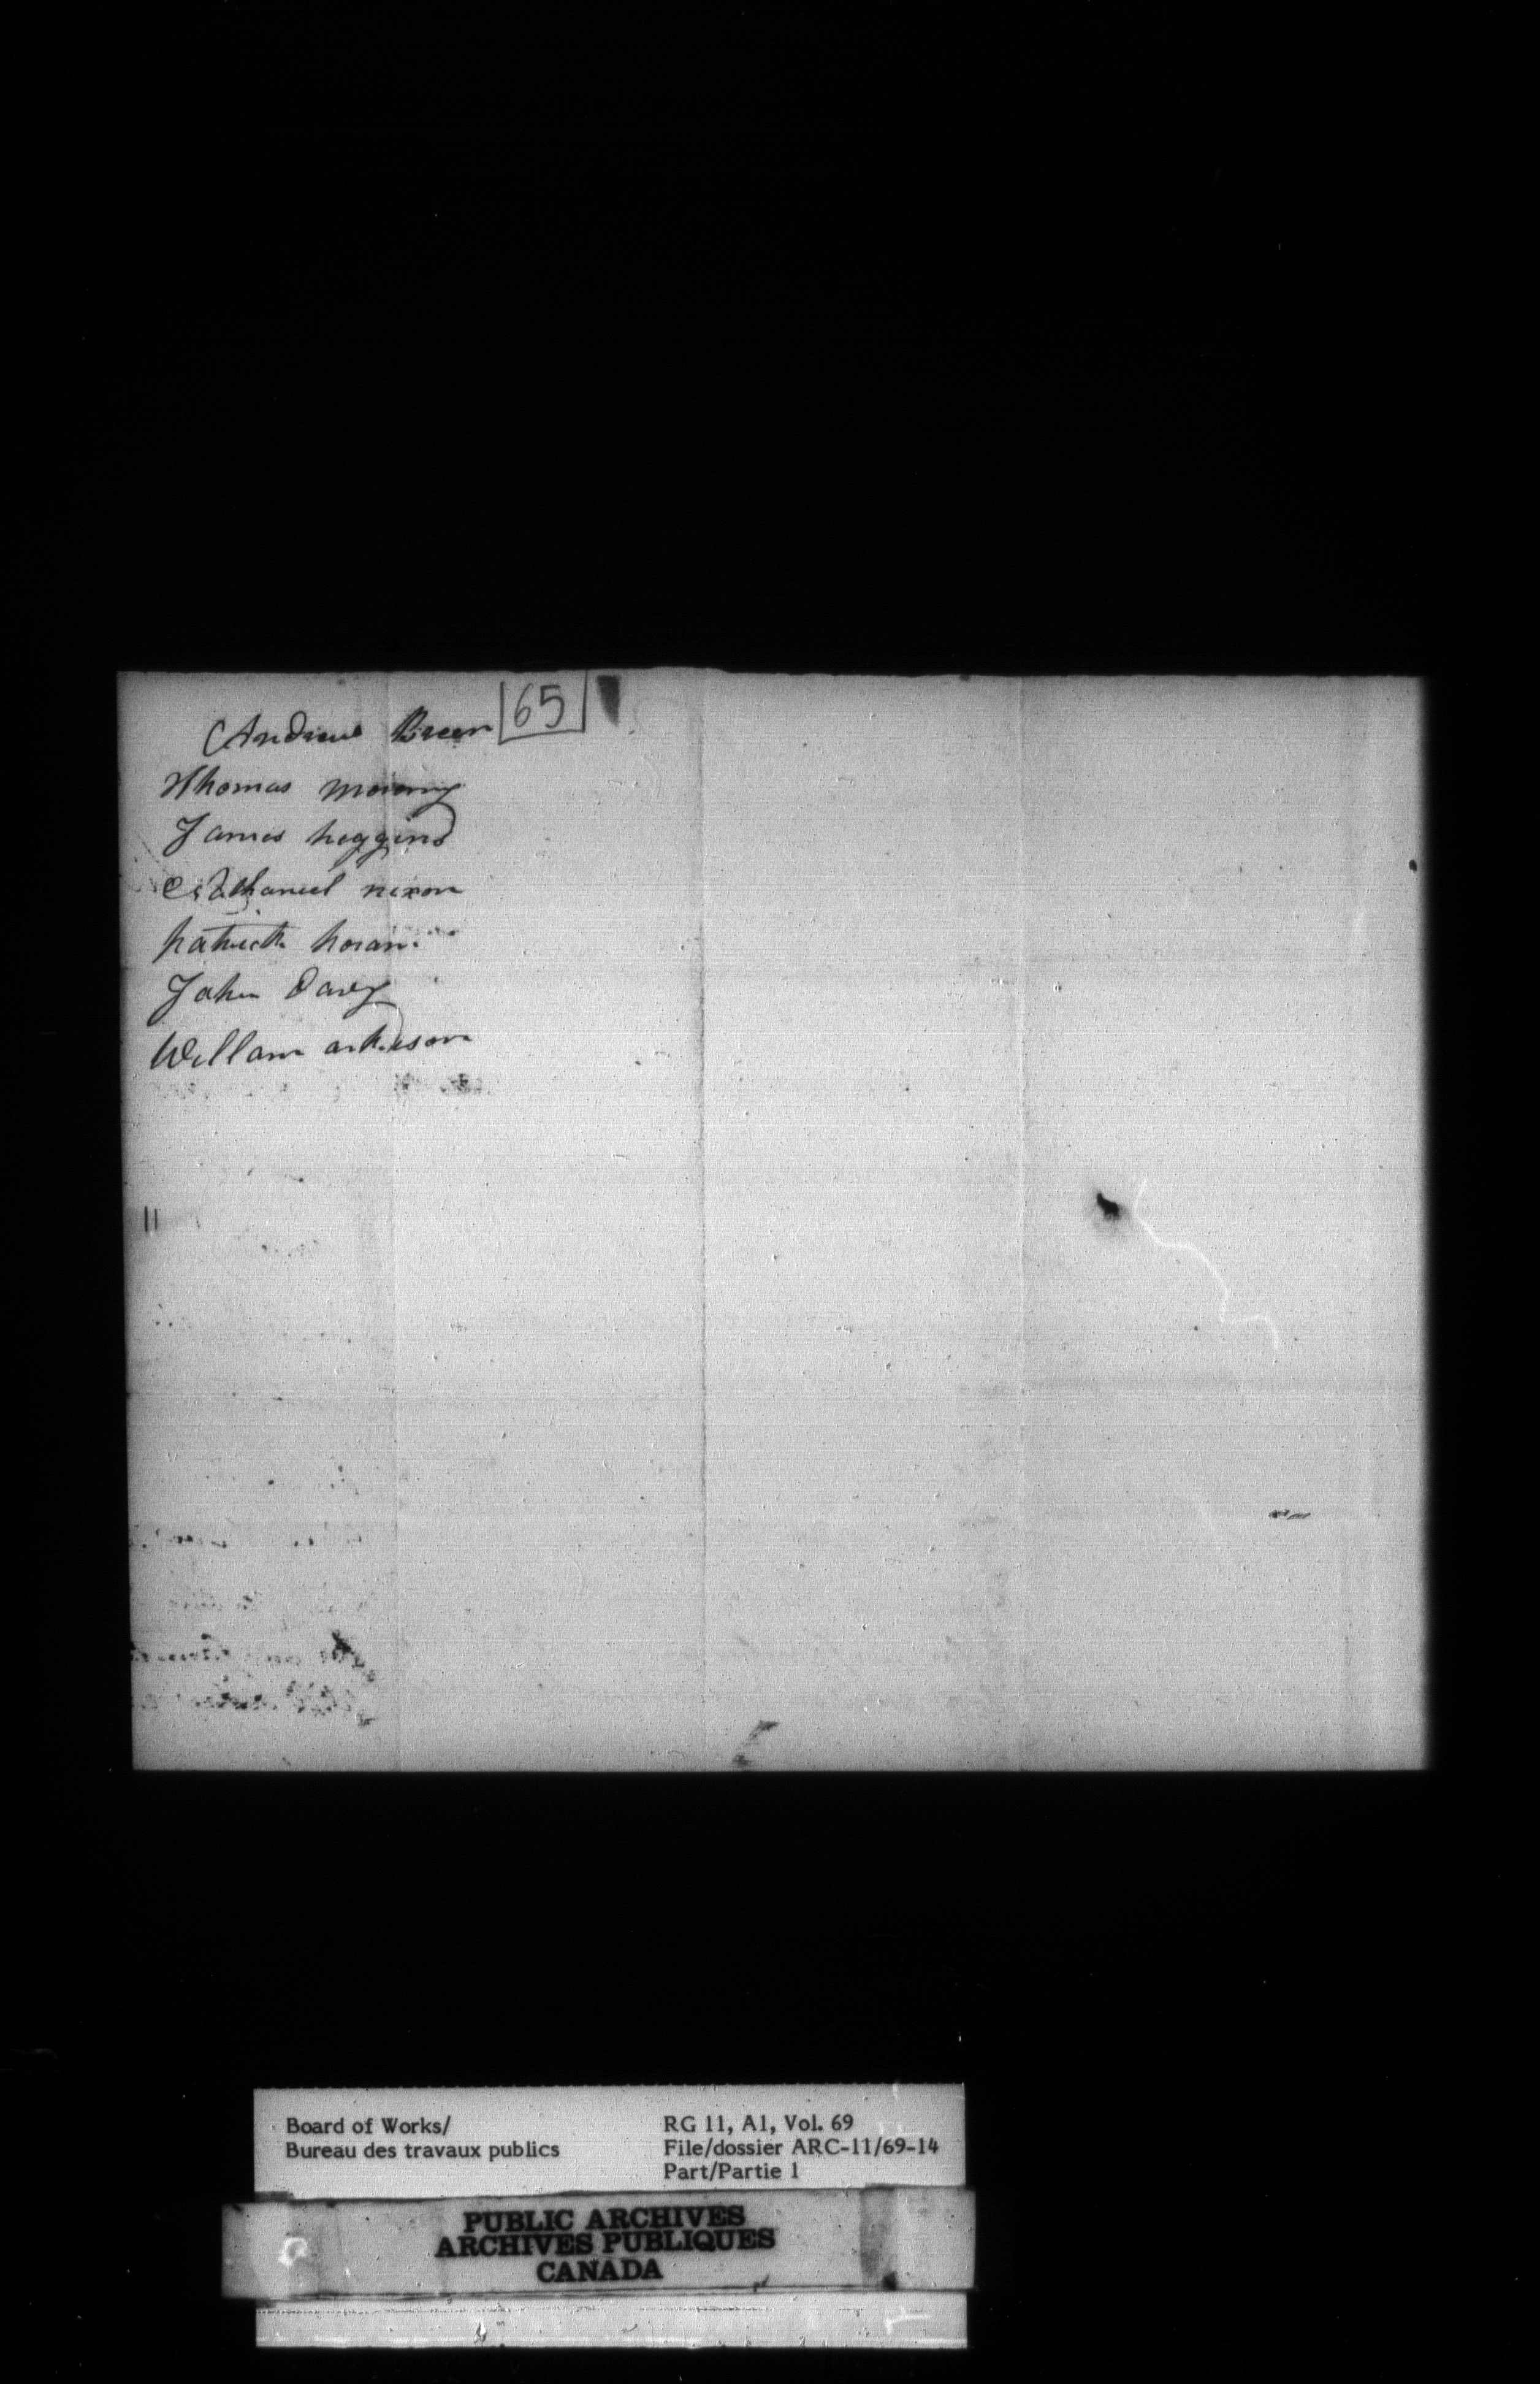 Andrew Breen
65
Thomas
James higgins
nixon
patrick horan
John Davy
Willam
Board of Works/
Bureau des travaux publics
RG 11, A1, Vol. 69
File/dossier ARC-11/69-14
Part/Partie 1
PUBLIC ARCHIVES
ARCHIVES PUBLIQUES
CANADA